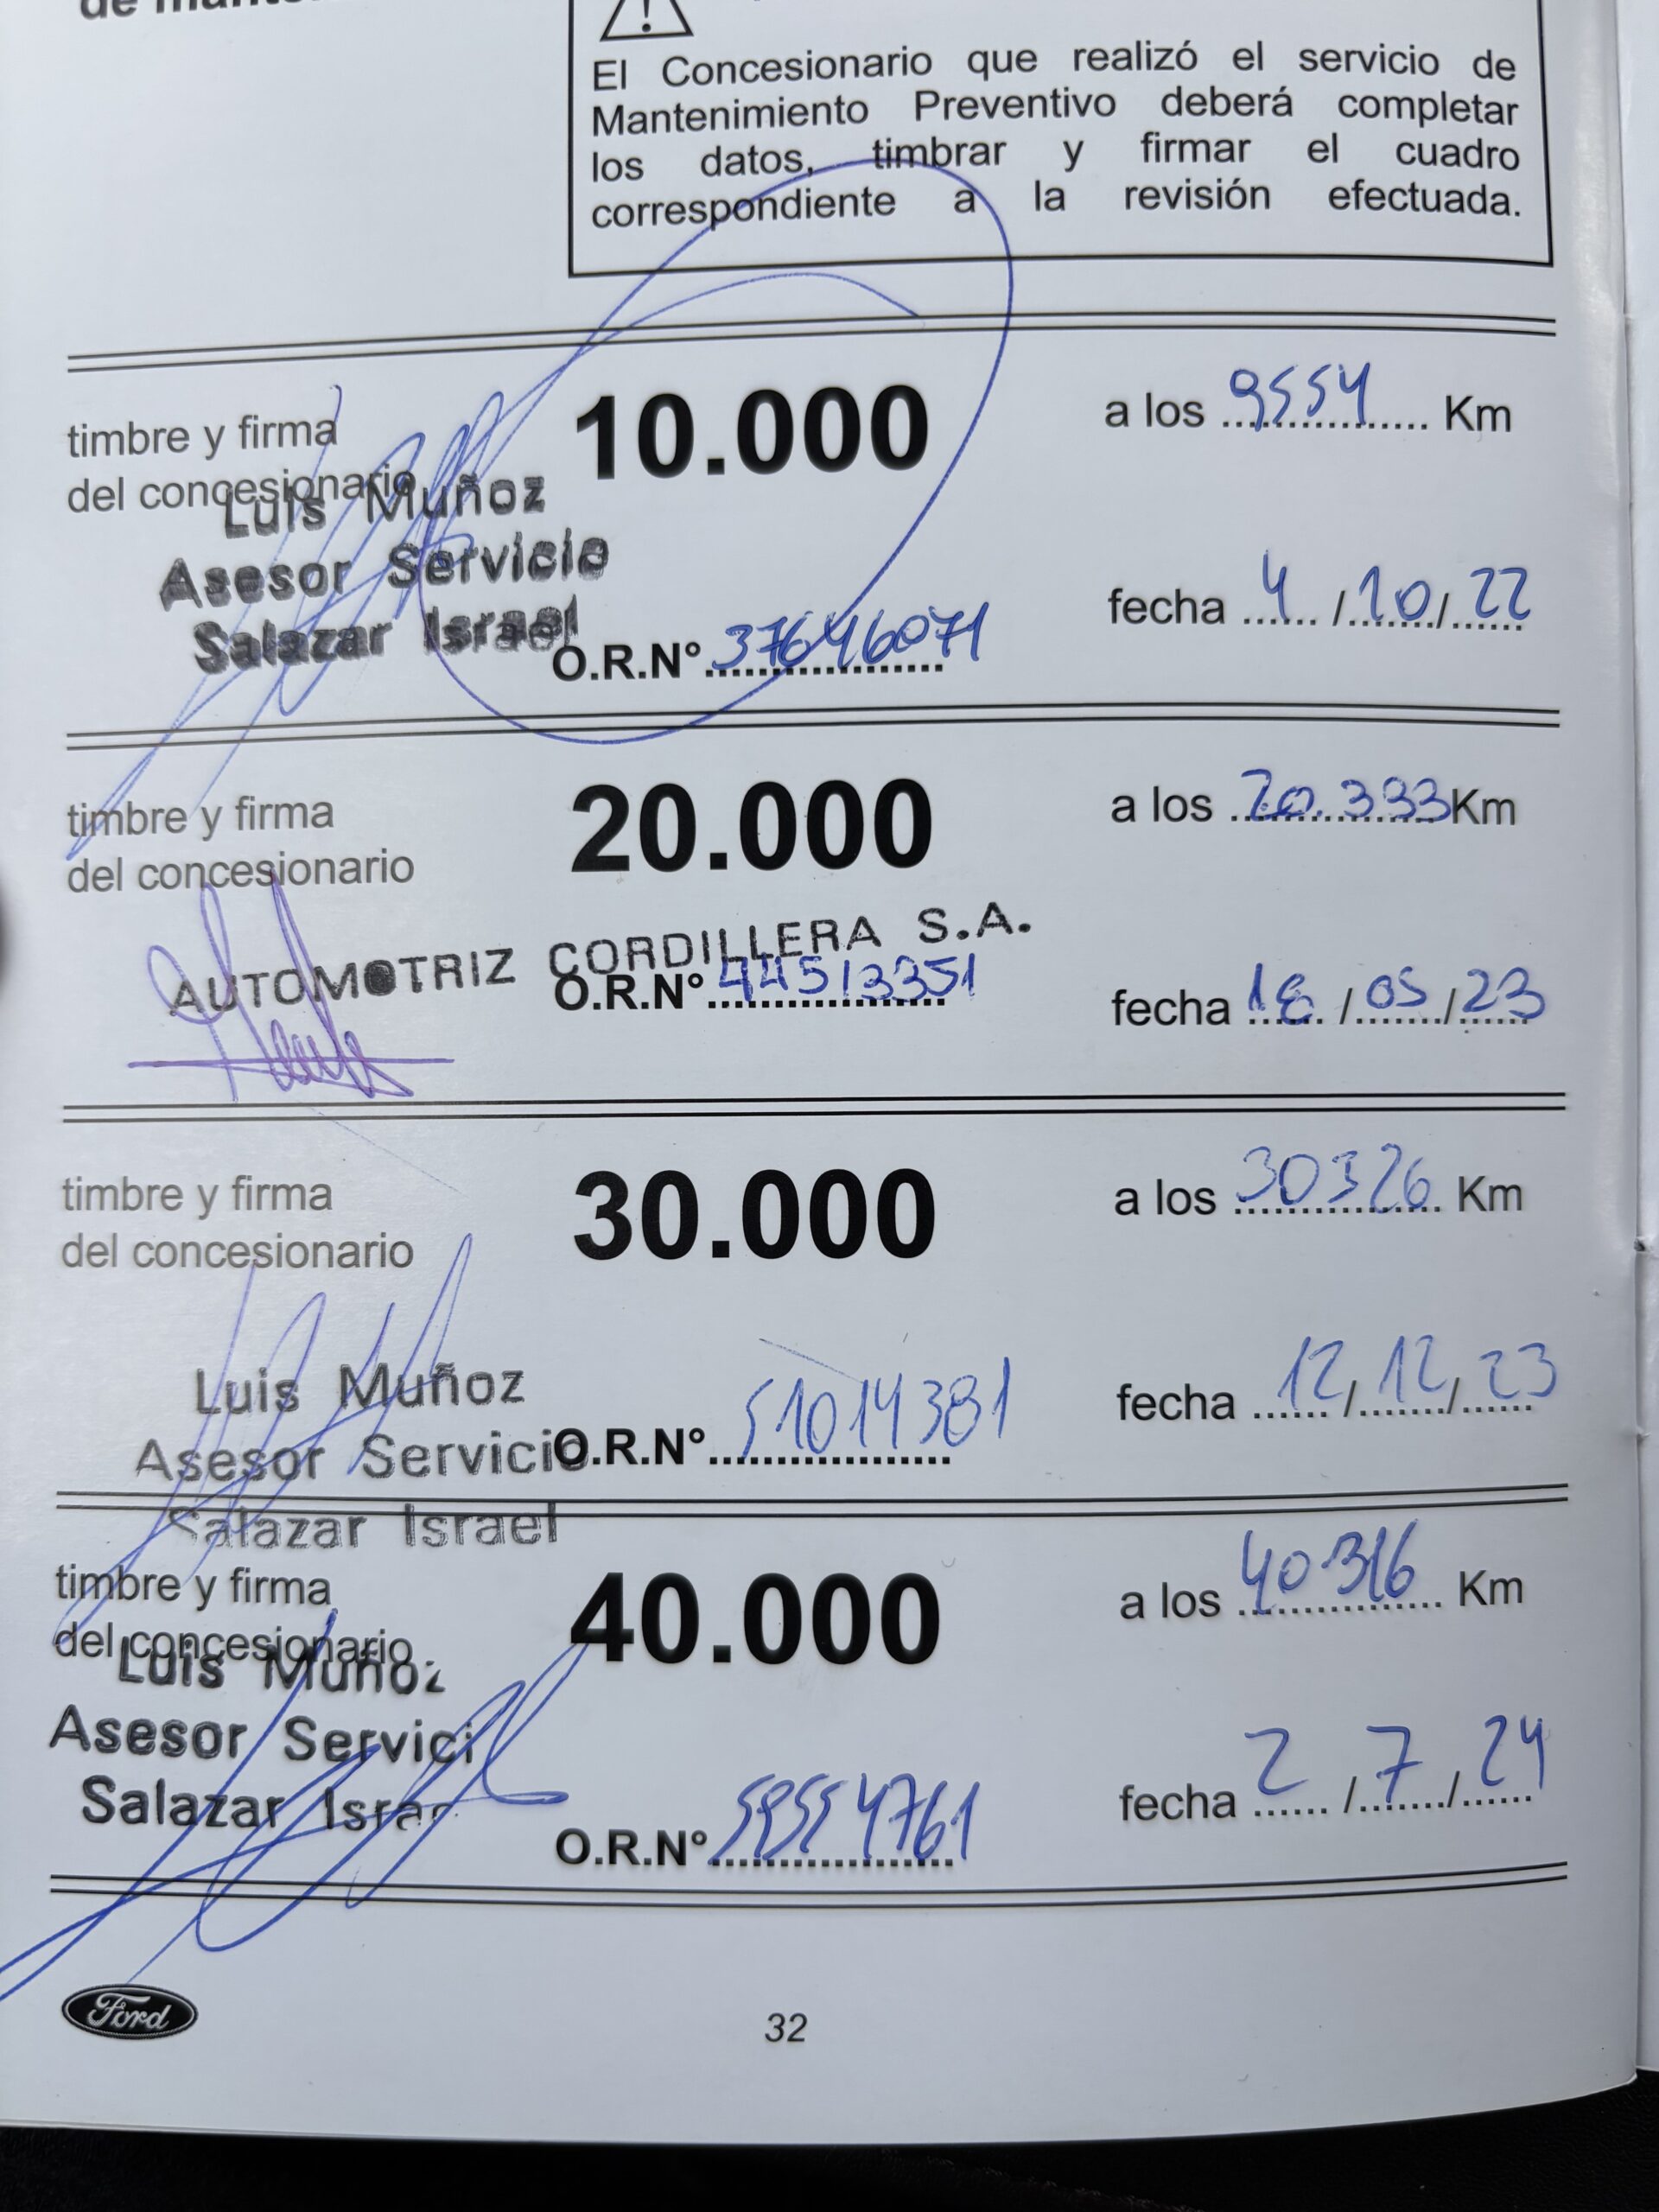 El Concesionario que realizó el servicio de
Mantenimiento Preventivo deberá completar
los datos, timbrar y firmar el cuadro
correspondiente a la revisión efectuada.
timbre y firma
del concesionario
10.000
a los 9554 Km
Luis Muñoz
Asesor Servicio
Salazar Israel
O.R.N° 37646071
fecha 4/10/22
timbre y firma
del concesionario
20.000
a los 20.333 Km
AUTOMOTRIZ CORDILLERA S.A.
O.R.N° 44513351
fecha 18/05/23
timbre y firma
del concesionario
30.000
a los 30326 Km
Luis Muñoz
Asesor Servicio
Salazar Israel
O.R.N° 51014381
fecha 12/12/23
timbre y firma
del concesionario
40.000
a los 40316 Km
Luis Muñoz
Asesor Servici
Salazar Israe
O.R.N°
fecha 2/7/24
Ford
32